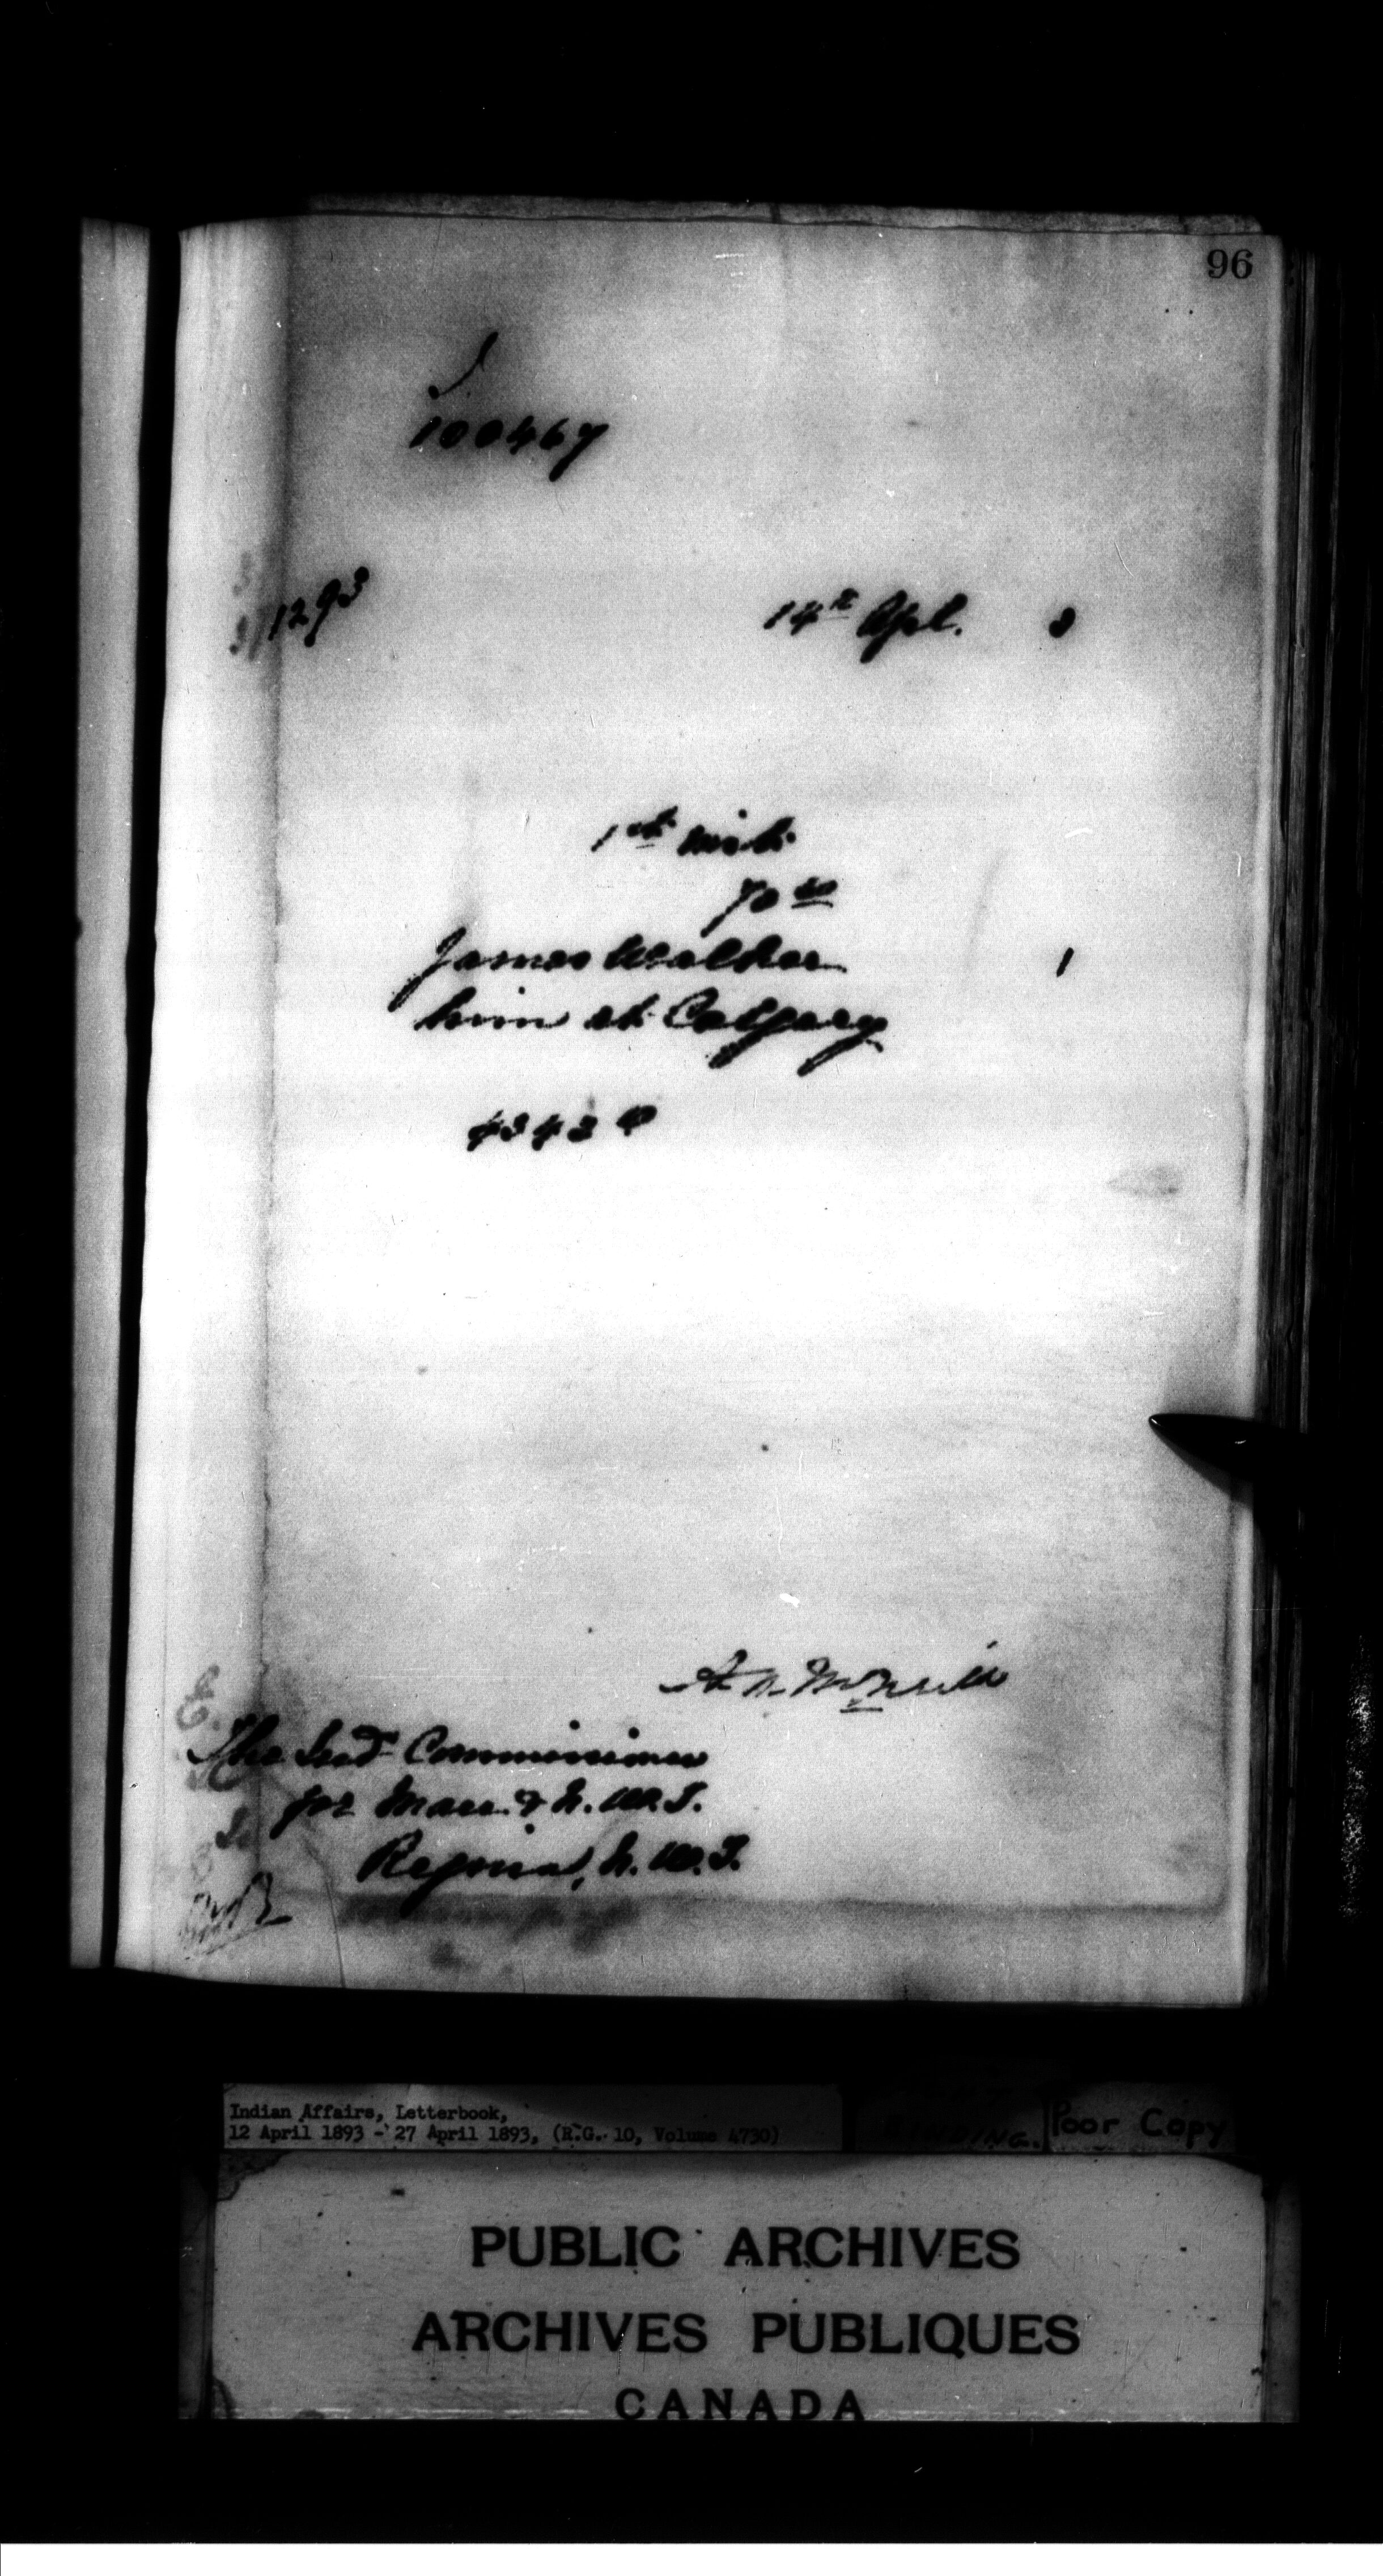 96
100467
1293
14th Apl. 3
1st inst.
70 00
James Walker 1
him at Calgary
The Ind. Commissioner
for Man. & N.W.T.
Regina, N.W.T.
Indian Affairs, Letterbook,
12 April 1893 - 27 April 1893, (R.G. 10, Volume 4730)
BINDING.
Poor Copy
PUBLIC ARCHIVES
ARCHIVES PUBLIQUES
CANADA